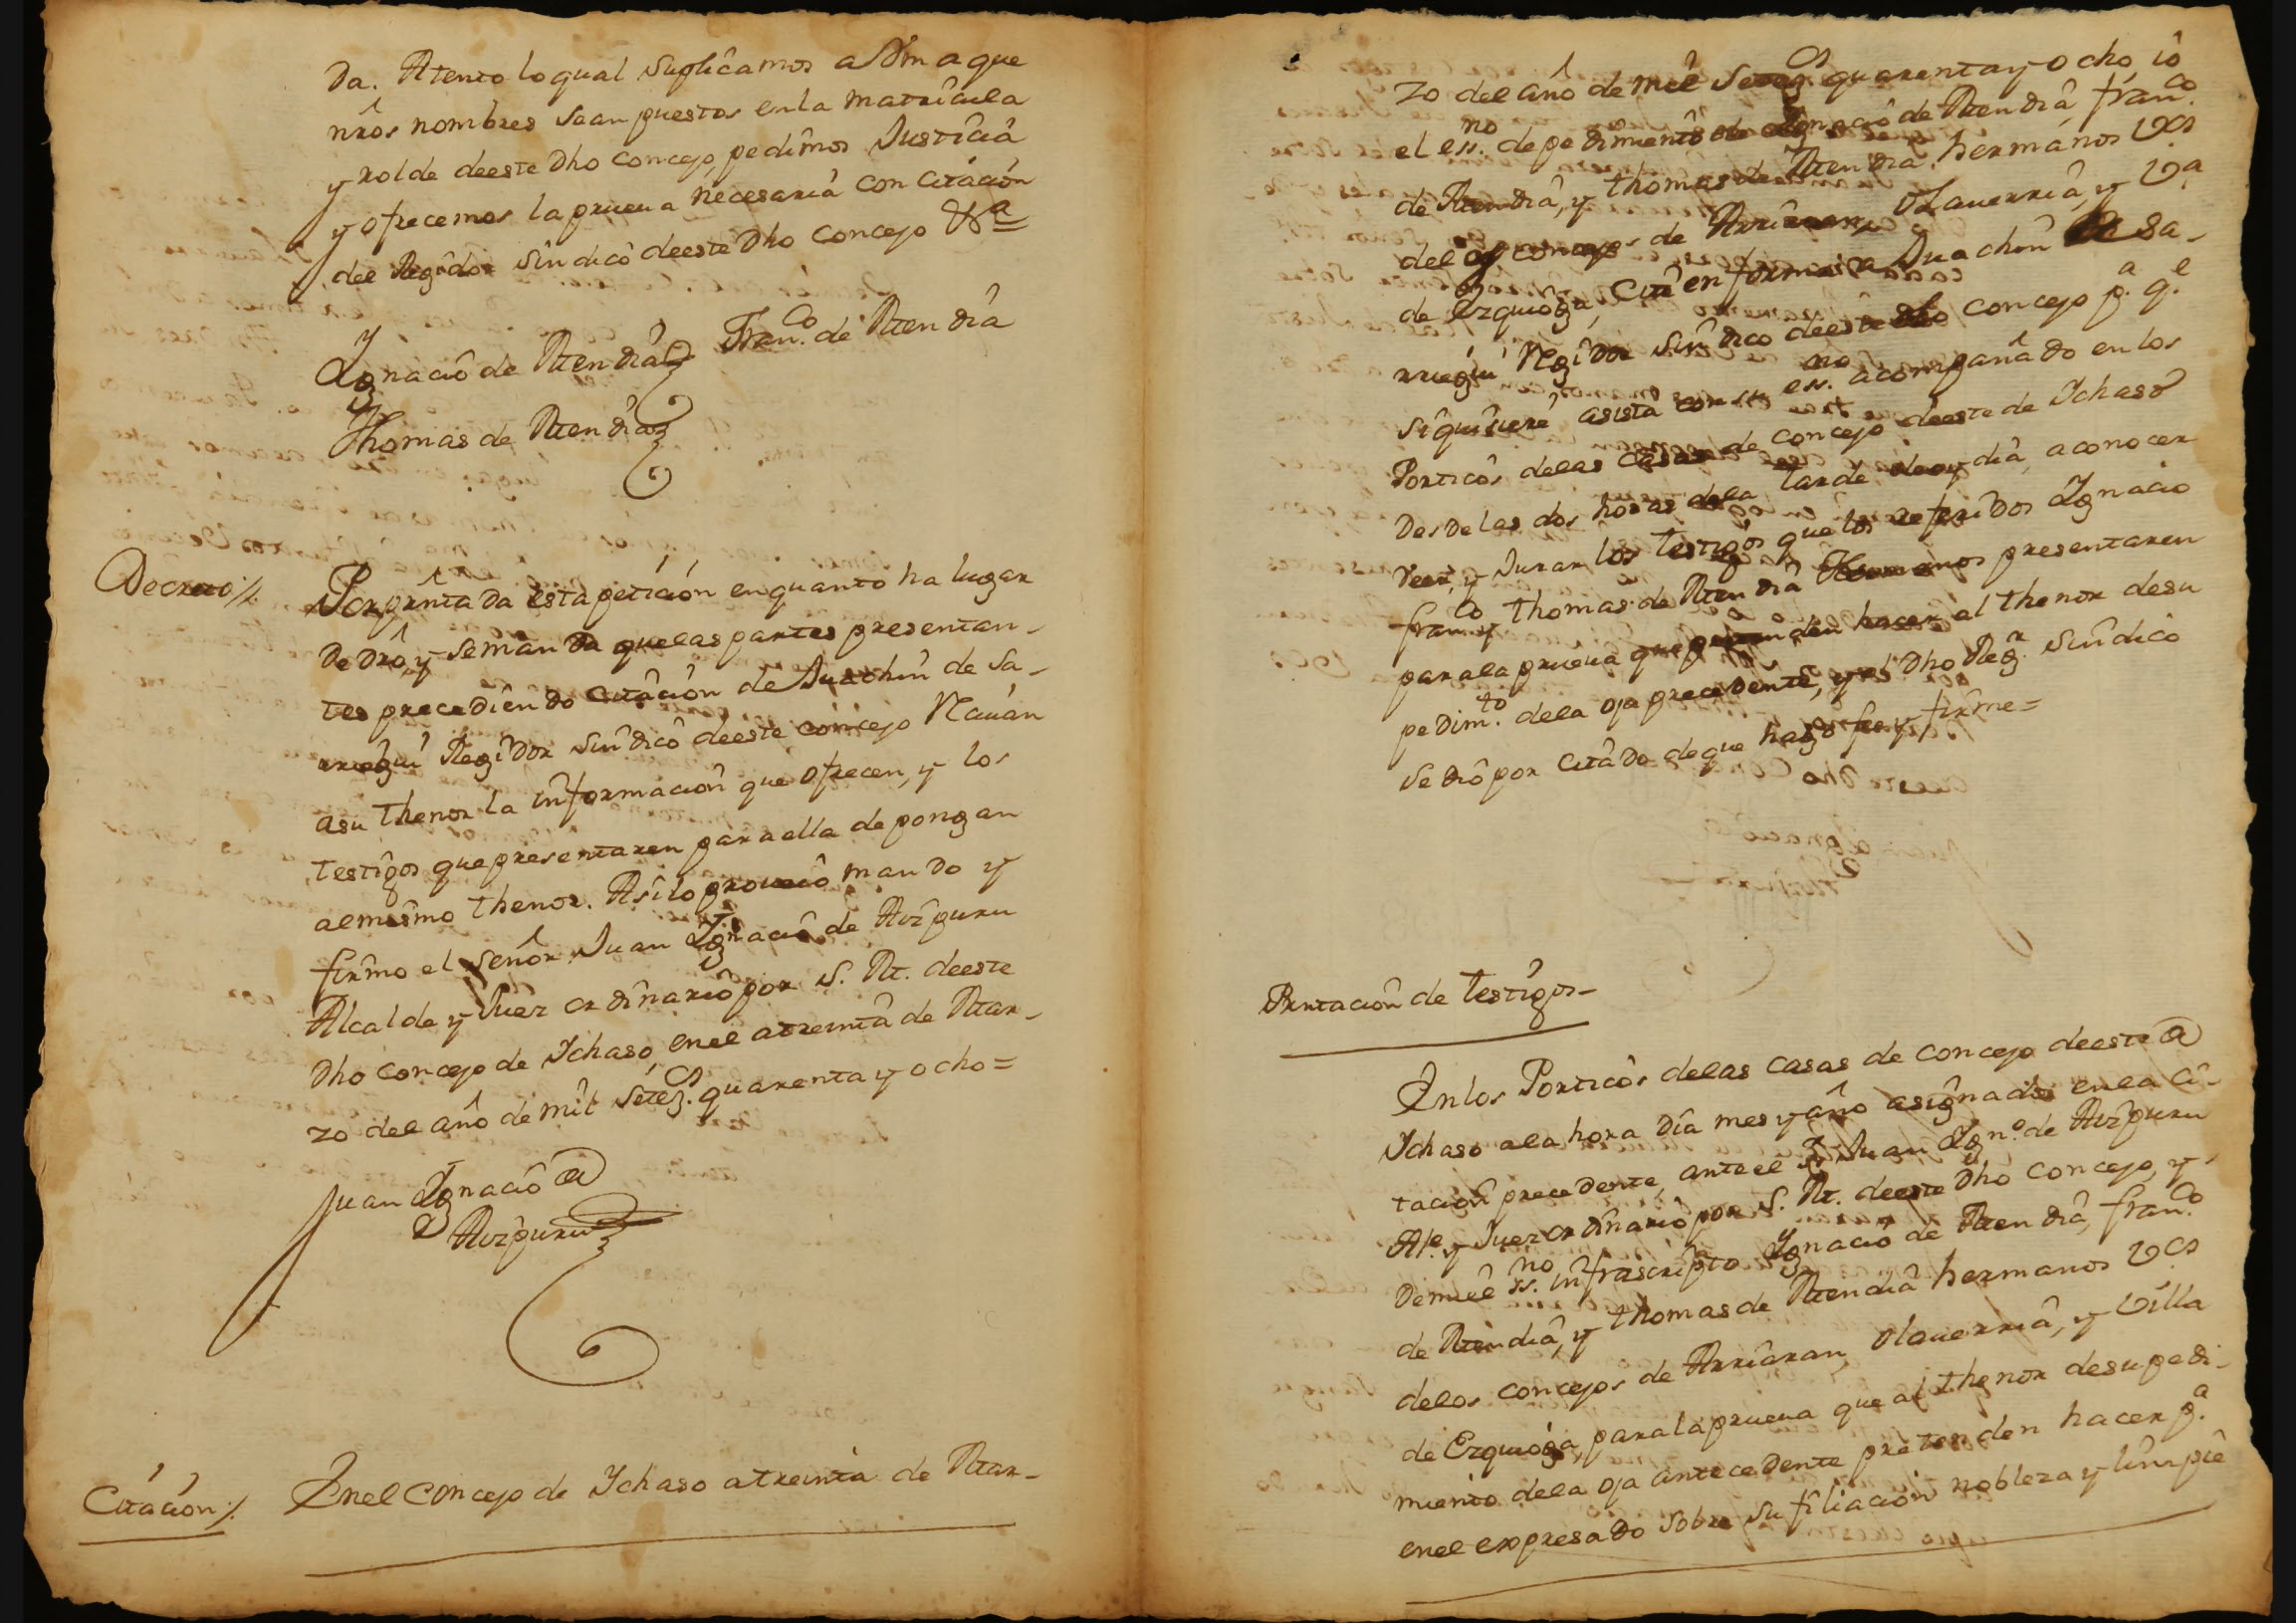 da. Atento lo qual suplicamos a Vm a que
nr̃os nombres sean puestos en la matricula
y rolde de este dho concejo, pedimos Justicia
y ofrecemos la prueua necesaria con citacion
del Regidor sindico de este dho concejo &ª
Ignacio de Mendia Fran.co de Mendia
Thomas de Mendia
Decreto //.
Por prñtada esta peticion en quanto ha lugar
de dr̃o, y se manda que las partes presentan-
tes precediendo citacion de Juachin de Sa-
rregui Regidor sindico de este concejo Reciuan
a su thenor la informacion que ofrecen, y los
testigos que presentaren para ella depongan
al mesmo thenor. Asi lo proueio mando y
firmo el señor Juan Ignacio de Aizpuru
Alcalde y Juez ordinario por S. M. de este
dho concejo de Ichaso, en el a treinta de Mar-
zo del año de mil setez.os quarenta y ocho =
Juan Ignacio de
Aizpuru
Citacion //.
En el concejo de Ichaso a treinta de Mar-
zo del año de mil setez.os quarenta y ocho, io
el ess.no de pedimiento de Ignacio de Mendia, fran.co
de Mendia, y thomas de Mendia hermanos V.os
de los concejos de Arriaran, Olauerria, y V.a
de Ezquioga, cite en forma a Juachin de Sa-
rregui Regidor sindico de este dho concejo p.a q.e
si quisiere asista con su ess.no acompañado en los
Porticos de las casas de concejo de este de Ichaso
desde las dos horas de la tarde de oy dia, a conocer
veer, y Jurar los testigos que los referidos Ignacio
fran.co y thomas de Mendia Hermanos presentaren
para la prueua que pretenden hacer al thenor de su
pedim.to de la oja precedente, y el dho Reg.r sindico
se dio por citado de que hago fee y firme =
Prñtacion de testigos -
En los Porticos de las casas de concejo de este de
Ichaso a la hora dia mes y año asignados en la ci-
tacion precedente, ante el S.r Juan Ign.o de Aizpuru
Al.e y Juez ordinario por S. M. de este dho concejo, y
de mi el ss.no infrascripto Ignacio de Mendia, fran.co
de Mendia, y thomas de Mendia hermanos V.os
de los concejos de Arriaran, Olauerria, y Villa
de Ezquioga, para la prueua que al thenor de su pedi-
miento de la oja antecedente pretenden hacer p.a
en el expresado sobre su filiacion nobleza y limpie